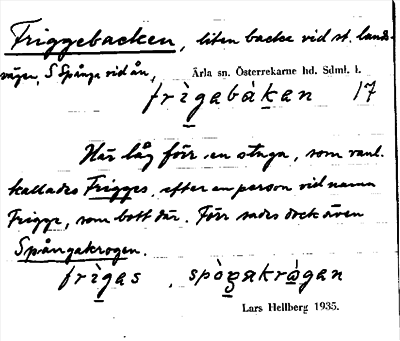 Friggebacken, liten backe vid st. lands-
vägen, S Spånga vid ån,
Ärla sn. Österrekarne hd. Sdml. l.
frìgabàkan 17
Här låg förr en stuga, som vanl.
kallades Frigges, efter en person vid namn
Frigge, som bott där. Förr sades dock även
Spångakrogen.
frìgas, spòŋakrògan
Lars Hellberg 1935.